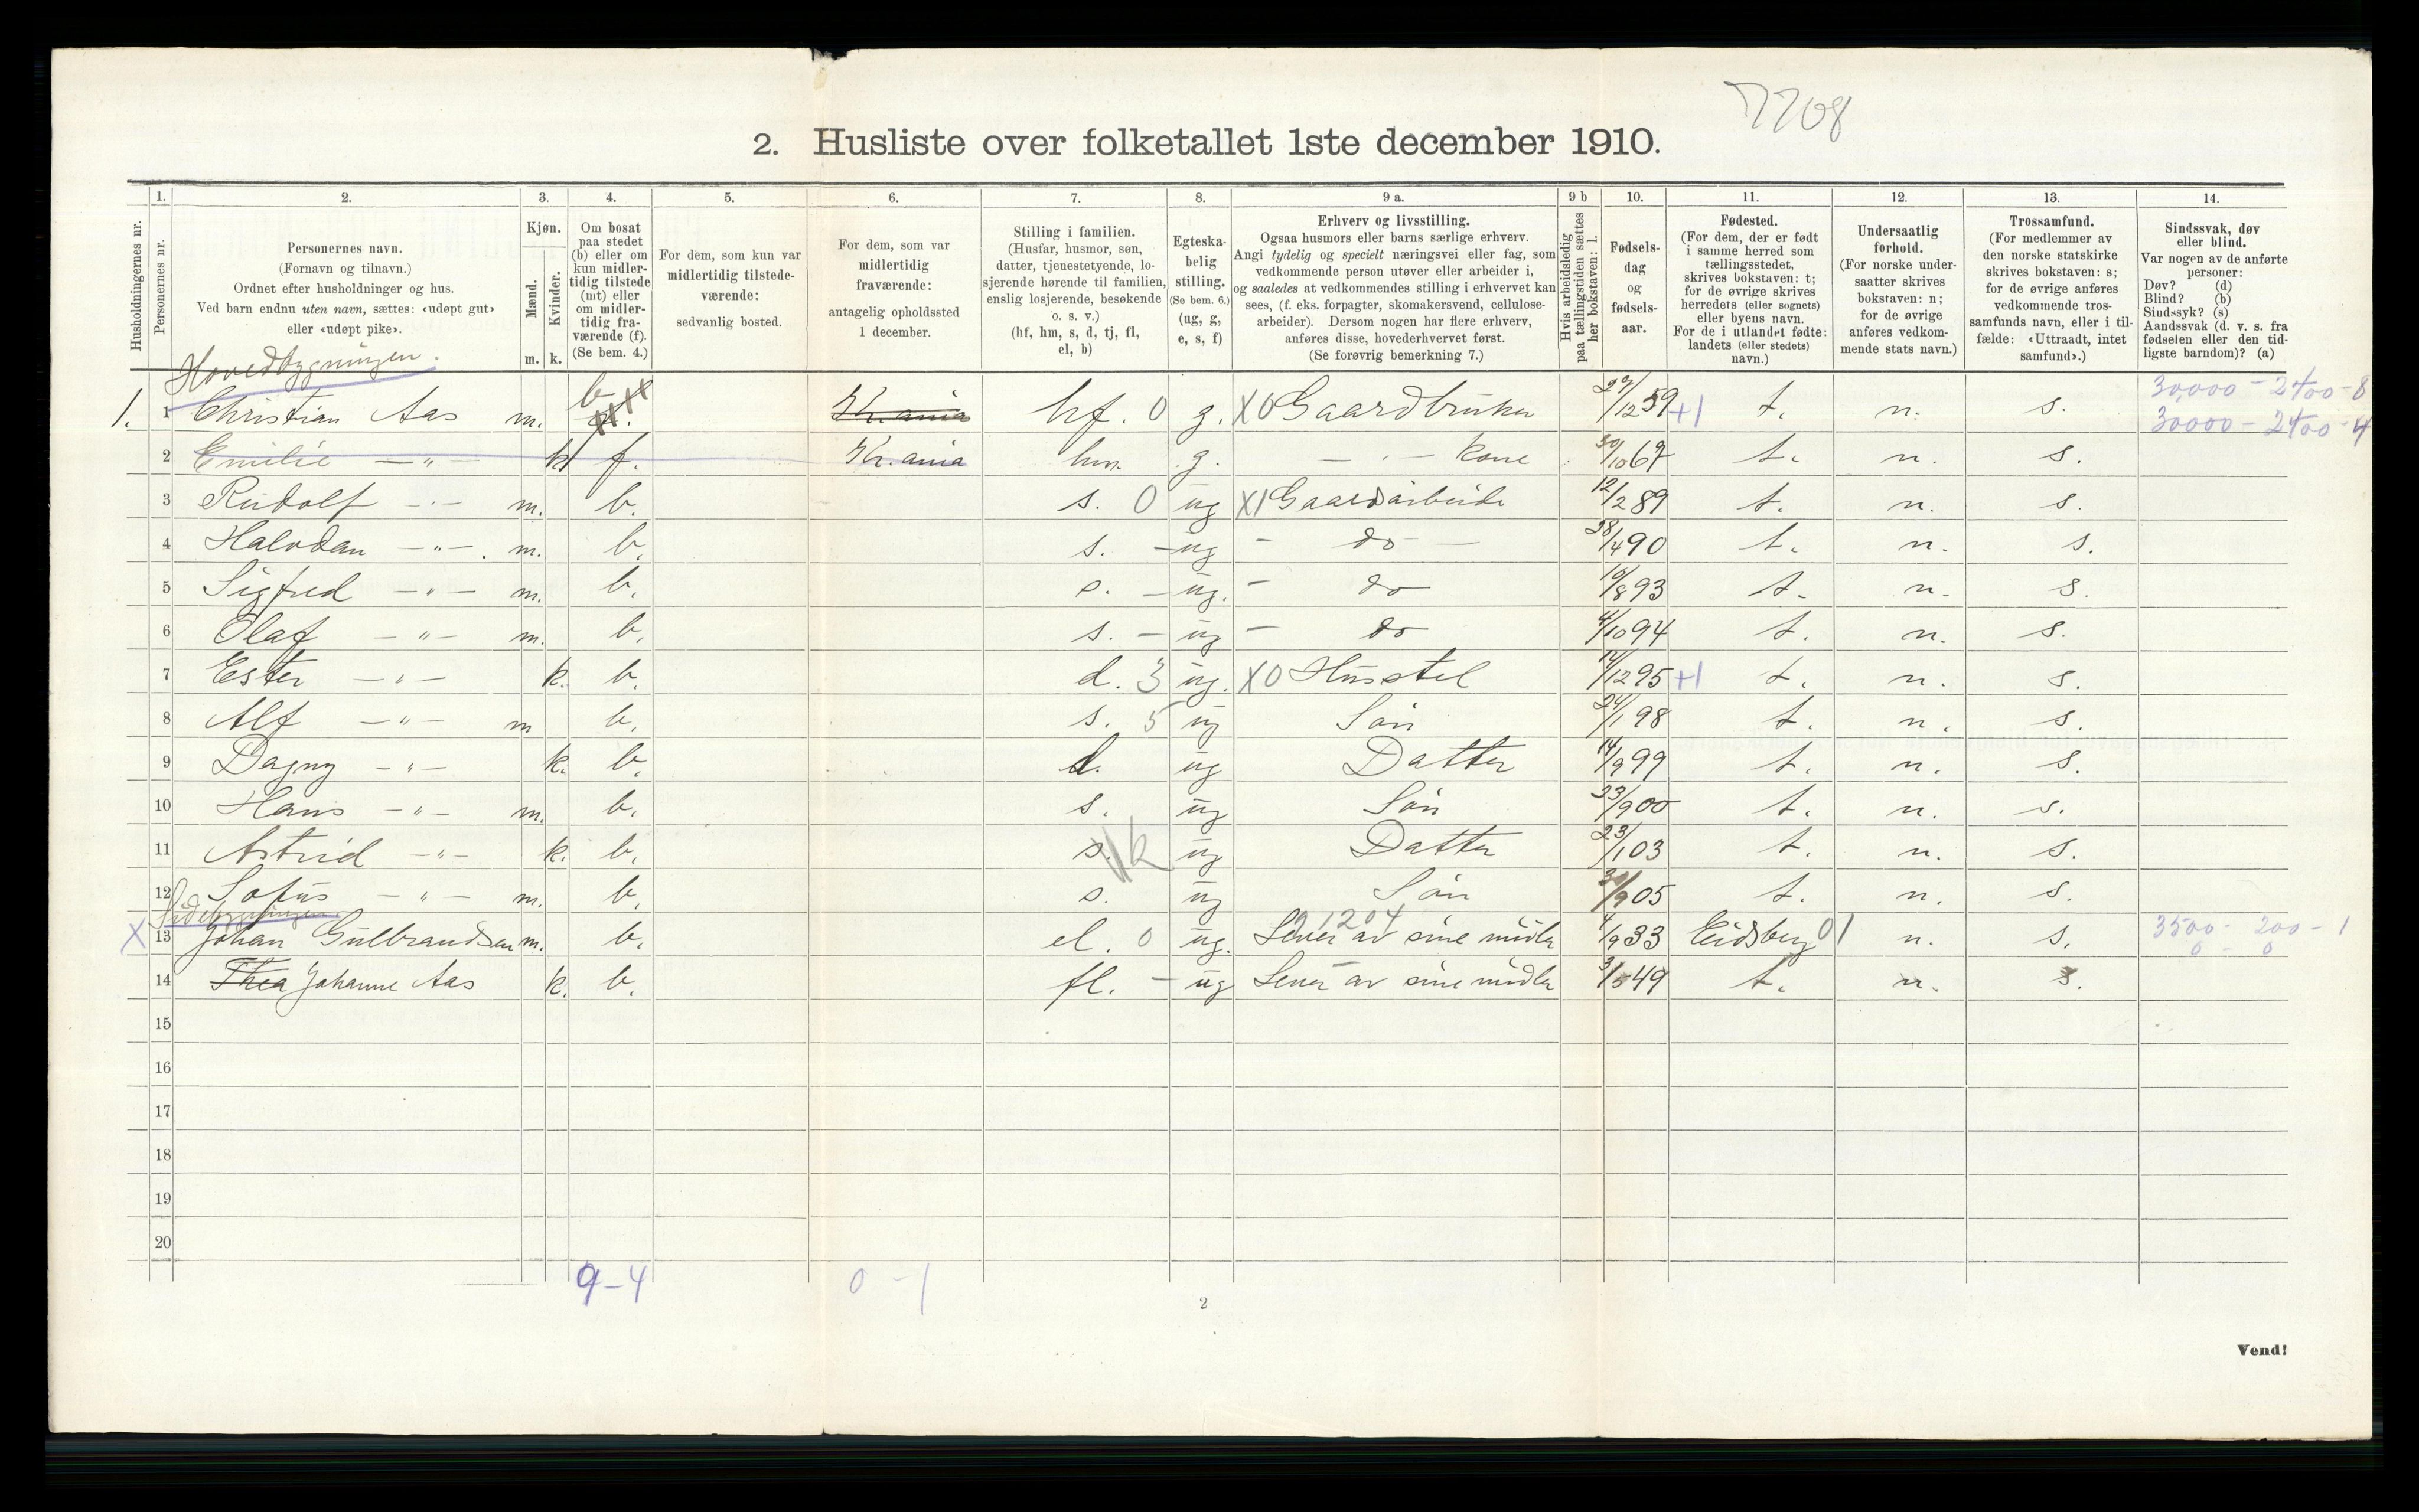 7708
2. Husliste over folketallet 1ste december 1910.
Husholdningernes nr.
1. Personernes nr.
2. Personernes navn.
(Fornavn og tilnavn.)
Ordnet efter husholdninger og hus.
Ved barn endnu uten navn, sættes: «udøpt gut»
eller «udøpt pike».
3. Kjøn.
Mænd. Kvinder.
m. k.
4. Om bosat
paa stedet
(b) eller om
kun midler-
tidig tilstede
(mt) eller
om midler-
tidig fra-
værende (f).
(Se bem. 4.)
5. For dem, som kun var
midlertidig tilstede-
værende:
sedvanlig bosted.
6. For dem, som var
midlertidig
fraværende:
antagelig opholdssted
1 december.
7. Stilling i familien.
(Husfar, husmor, søn,
datter, tjenestetyende, lo-
sjerende hørende til familien,
enslig losjerende, besøkende
o. s. v.)
(hf, hm, s, d, tj, fl,
el, b)
8. Egteska-
belig
stilling.
(Se bem. 6.)
(ug, g,
e, s, f)
9 a. Erhverv og livsstilling.
Ogsaa husmors eller barns særlige erhverv.
Angi tydelig og specielt næringsvei eller fag, som
vedkommende person utøver eller arbeider i,
og saaledes at vedkommendes stilling i erhvervet kan
sees, (f. eks. forpagter, skomakersvend, cellulose-
arbeider). Dersom nogen har flere erhverv,
anføres disse, hovederhvervet først.
(Se forøvrig bemerkning 7.)
9 b Hvis arbeidsledig
paa tællingstiden sættes
her bokstaven: l.
10. Fødsels-
dag
og
fødsels-
aar.
11. Fødested.
(For dem, der er født
i samme herred som
tællingsstedet,
skrives bokstaven: t;
for de øvrige skrives
herredets (eller sognets)
eller byens navn.
For de i utlandet fødte:
landets (eller stedets)
navn.)
12. Undersaatlig
forhold.
(For norske under-
saatter skrives
bokstaven: n;
for de øvrige
anføres vedkom-
mende stats navn.)
13. Trossamfund.
(For medlemmer av
den norske statskirke
skrives bokstaven: s;
for de øvrige anføres
vedkommende tros-
samfunds navn, eller i til-
fælde: «Uttraadt, intet
samfund».)
14. Sindssvak, døv
eller blind.
Var nogen av de anførte
personer:
Døv? (d)
Blind? (b)
Sindssyk? (s)
Aandssvak (d. v. s. fra
fødselen eller den tid-
ligste barndom)? (a)
Hovedbygningen.
1. 1 Christian Aas m. b Kr.ania hf. 0 g. X0 Gaardbruker 29/12 59 +1 t. n. s. 30,000 - 2400 - 8
30000 - 2400 - 4
2 Emilie —"— k f. Kr.ania hm. g. —"— kone 30/10 67 t. n. s.
3 Rudolf —"— m. b. s. 0 ug X1 Gaardsarbeide 12/2 89 t. n. s.
4 Halvdan —"—. m. b. s. - ug - do — 28/4 90 t. n. s.
5 Sigfred —"— m. b. s. - ug. - do 10/8 93 t. n. s.
6 Olaf —"— m. b. s. - ug - do 4/10 94 t. n. s.
7 Ester —"— k. b. d. 3 ug. X0 Husstel 14/12 95 +1 t. n. s.
8 Alf —"— m b. s. 5 ug Søn 24/1 98 t. n. s.
9 Dagny —"— k. b. d. ug Datter 14/9 99 t. n. s.
10 Hans —"— m. b. s. ug Søn 23/9 00 t. n. s.
11 Astrid —"— k. b. s. k ug Datter 23/1 03 t. n. s.
12 Sofus —"— m. b. s. ug Søn 30/9 05 t. n. s.
Sidebygningen
X 13 Johan Gulbrandsen m. b. el. 0 ug. 21204 Lever av sine midler 4/9 33 Eidsberg 01 n. s. 3500 - 200 - 1
0 - 0
14 Thea Johanne Aas k. b. fl. - ug Lever av sine midler 3/5 49 t. n. s.
15
16
17
18
19
20
9-4 0-1
2
Vend!